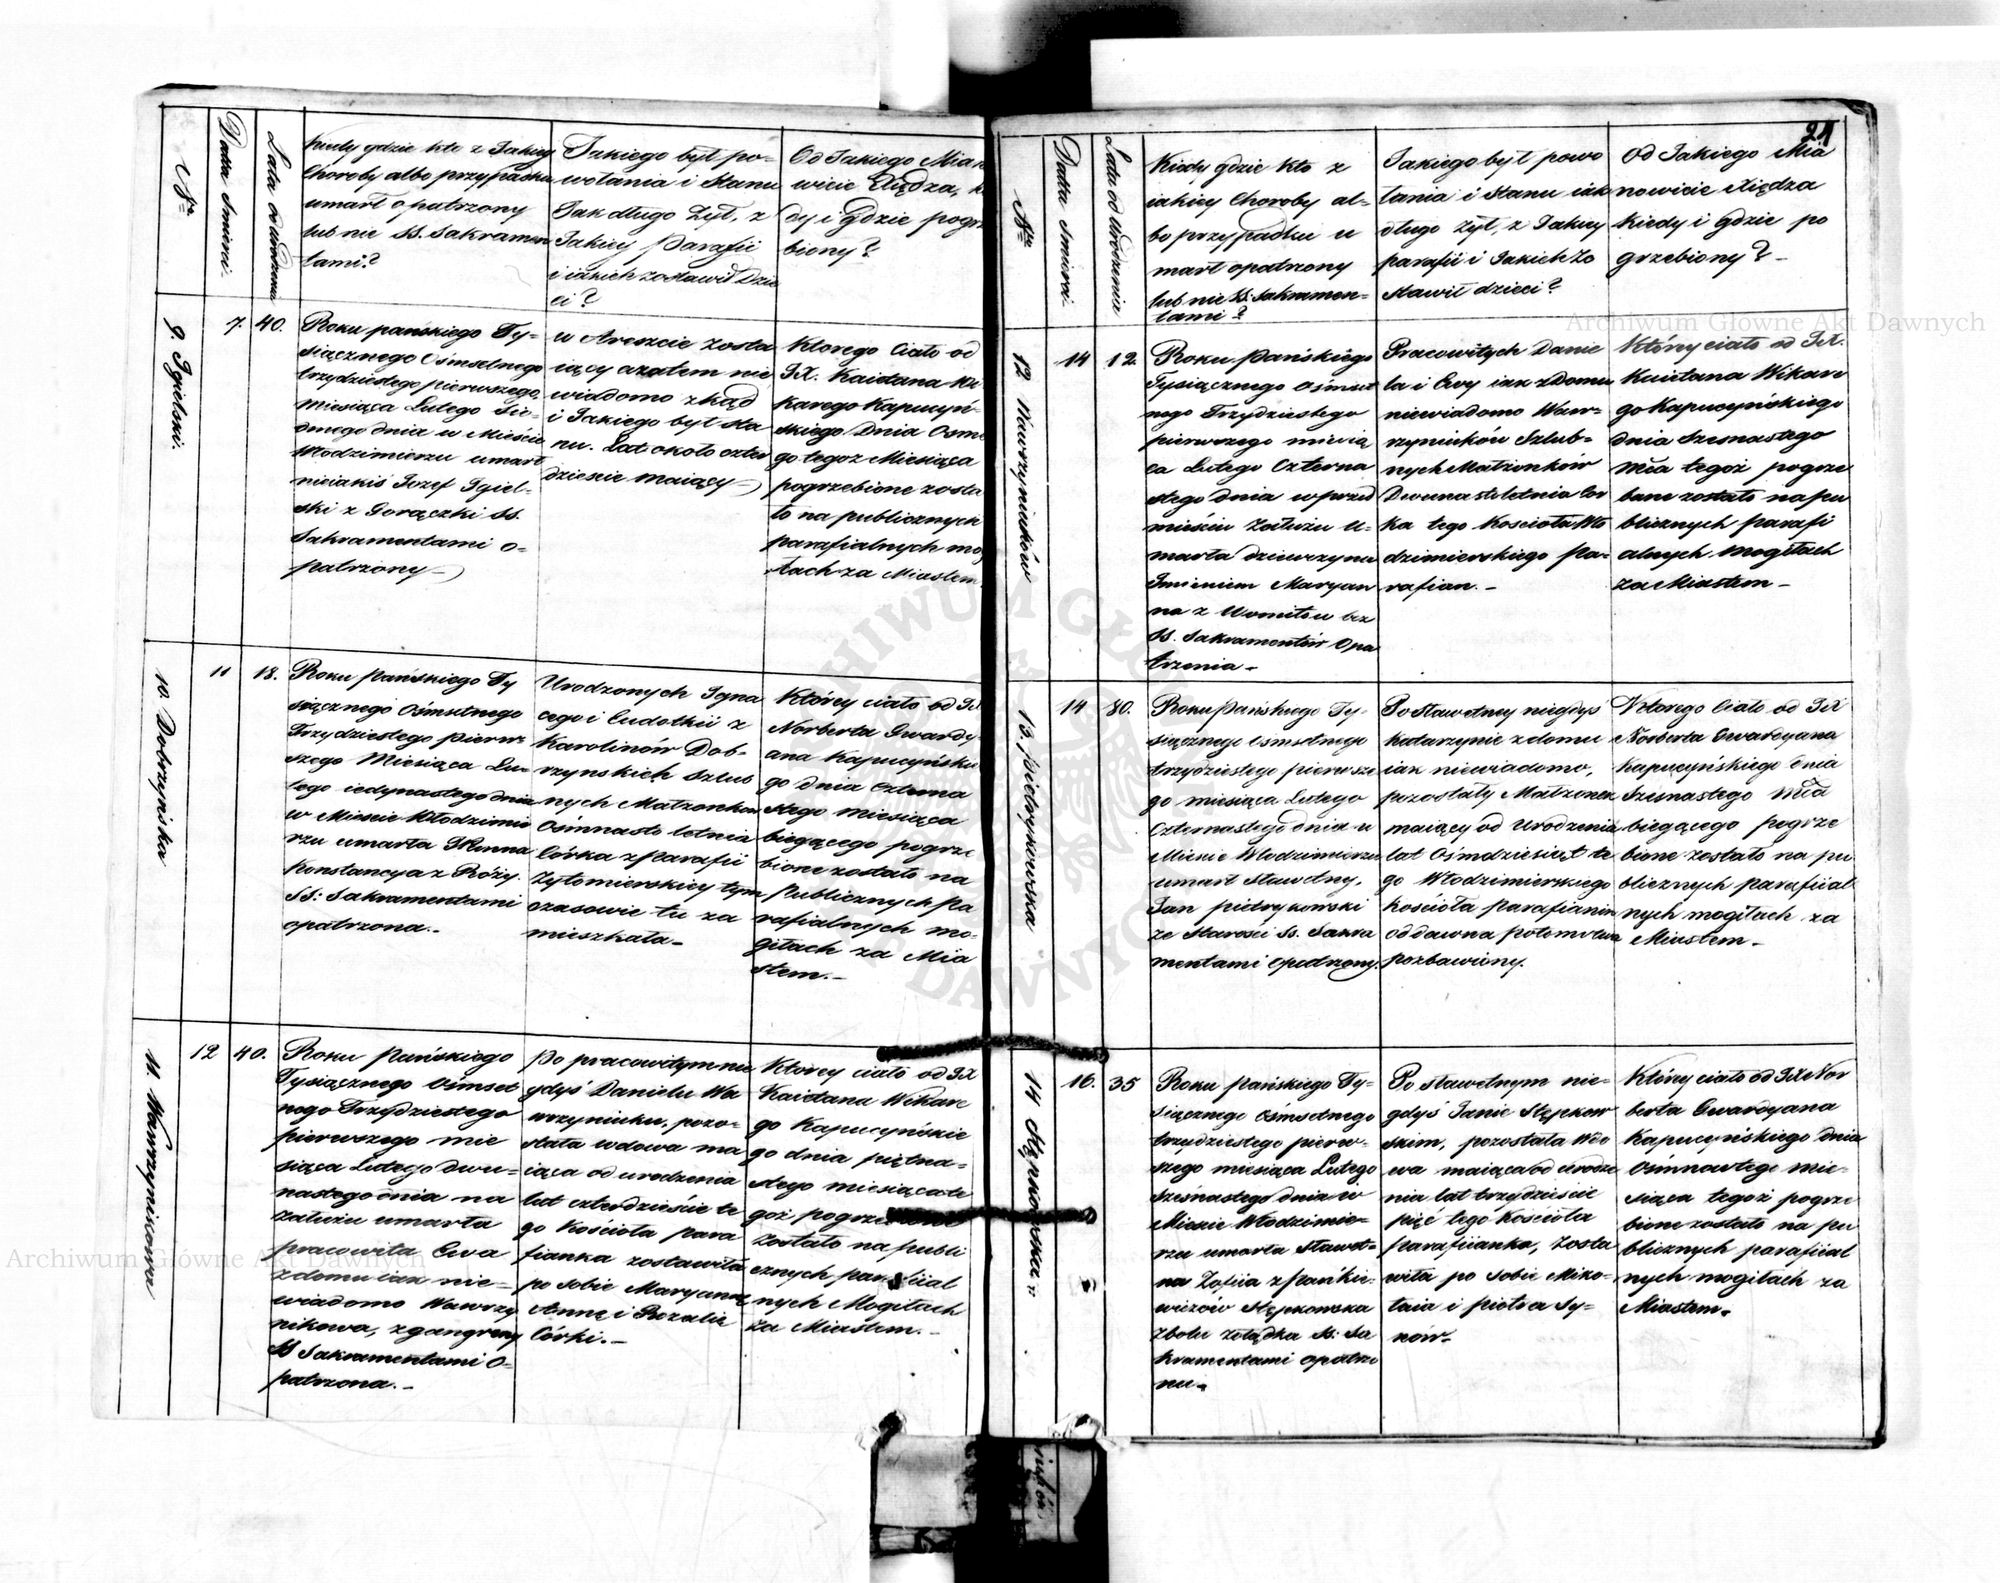 Nro
Datta Smierci.
Lata od Urodzenia
Kiedy gdzie kto z Jakiey
Choroby albo przypadku
umarł opatrzony
lub nie SS. Sakramen
tami?
Jakiego był po-
wołania i Stanu
Jak długo Żył, z
Jakiey Parafii
i iakich zostawił Dzie
ci?
Od Jakiego Mian
wicie Xiędza, k
dy i gdzie pogrz
biony?
9. Jgielski.
7.
40.
Roku pańskiego Ty-
siącznego Ośmsetnego
trzydziestego pierwszego,
Miesiąca Lutego Sie-
dmego dnia w Mieście
Włodzimierzu umarł
nieiakiś Jozef Jgiel-
ski z Gorączki SS.
Sakramentami o-
patrzony -
w Areszcie zosta
iący azatem nie
wiadomo zkąd
i Jakiego był sta
nu. Lat około czter
dzieście maiący -
Ktorego Ciało od
JX. Kaietana Wi
karego Kapucyń-
skiego Dnia Osme
go tegoż Miesiąca
pogrzebione zosta
ło na publicznych
parafialnych mo
iłach za Miastem.
10. Dobrzyńska
11
18.
Roku Pańskiego Ty
siącznego Ośmsetnego
Trzydziestego pierw-
szego Miesiąca Lu-
tego iedynastego dnia
w Mieście Włodzimie
rzu umarła Panna
Konstancya z Róży.
SS: Sakramentami
opatrzona.-
Urodzonych Igna
cego i Eudokii z
Karolinów Dob-
rzynskich Szlub
nych Matzonkow
Ośmnasto letnia
Córka z Parafii
Żytomierskiey tym
czasowie tu za
mieszkała-
Którey ciało od JX
Norberta Gwardy-
ana Kapucyńskie
go dnia czterna
stego miesiąca
biegącego pogrze
bione zostało na
Publicznych Pa
rafialnych mo-
giłach za Mia
stem.-
11 Wawrzynikowa
12
40.
Roku Pańskiego
Tysiącznego Ośmset
nego Trzydziestego
pierwszego mie
siąca Lutego dwu-
nastego dnia na
Załużu umarła
pracowita Ewa
z domu iak nie-
wiadomo Wawrzy
nikowa, z gangreny
SS Sakramentami O-
patrzona.-
Po pracowitym nie
gdyś Danielu Wa
wrzyniuku, pozo-
stała wdowa ma
iąca od urodzenia
lat czterdzieście te
go Kościoła para
fianka zostawiła
po sobie Maryannę
Annę i Rozalię
Córki.-
Ktorey ciało od JX
Kaietana Wikare
go Kapucyńskie
go dnia piętna-
stego miesiąca te
goż pogrzebione
zostało na publi
cznych parafiial
nych Mogiłach
za Miastem.-
24
Nro
Datta Smierci.
Lata od Urodzenia
Kiedy gdzie kto z
iakiey Choroby al-
bo przypadku u
marł opatrzony
lub nie SS. Sakramen-
tami?
Jakiego był powo
łania i Stanu iak
długo żył, z Jakiey
parafii i Jakich Zo
stawił dzieci?
Od Jakiego Mia
nowicie Xiędza
Kiedy i gdzie po
grzebiony? -
12 Wawrzyniuków
14
12.
Roku Pańskiego
Tysiącznego Ośmset
nego Trzydziestego
pierwszego miesią
ca Lutego Czterna
stego dnia w przed
mieściu Załużu U-
marła dziewczyna
Imieniem Maryan
na z Womitów bez
SS. Sakramentów Opa
trzenia -
Pracowitych Danie
la i Ewy iak z Domu
niewiadomo Waw-
rzyniuków Szlub-
nych Matżonków
Dwunasto letnia Cor
ka tego Kościoła Wło
dzimierskiego pa-
rafian. -
Któryciało od JX.
Kaietana Wikare
go Kapucyńskiego
dnia Szesnastego
Mca tegoż pogrze
bane zostało na pu
blicznych parafi
alnych mogiłach
za Miastem -
13. Pietrykowska
14
80.
Roku Pańskiego Ty-
siącznego Ośmsetnego
trzydziestego pierwsze
go miesiąca Lutego
Czternastego dnia w
Mieście Włodzimierzu
umarł Sławetny,
Jan Pietrykowski
ze Starości SS. Sakra
mentami Opatrzony.
Po Sławetney niegdyś
Katarzynie z domu
iak niewiadomo,
pozostały Małżonek
maiący od Urodzenia
lat Ośmdziesiąt te
go Włodzimierskiego
Kościoła Parafianin
od dawna potomstwa
pozbawiony.
Ktorego Ciało od JX
Norberta Gwardyana
Kapucyńskiego Dnia
Szesnastego Mca
biegącego pogrze
bione zostało na pu
blicznych parafiial
nych mogiłach za
Miastem-
14 Stępkowska
16.
35
Roku Pańskiego Ty-
siącznego Ośmsetnego
trzydziestego pierw-
szego miesiąca Lutego
Szesnastego dnia w
Mieście Włodzimie-
rzu umarła Sławet-
na Zofiia z Pańkie-
wiczów Stępkowska
z bolu zołądka SS: Sa
kramentami opatrzo
na-
Po Sławetnym nie-
gdyś Janie Stępkow
skim, pozostała Wdo
wa maiąca od Urodze
nia lat trzydzieście
pięć tego Kościoła
Parafiianka, Zosta
wiła po sobie Miko-
łaia i Piotra Sy-
nów-
Któryciało od JX Nor
berta Gwardyana
Kapucyńskiego dnia
Ośmnastego mie-
siąca tegoż pogrze
bione zostało na pu
blicznych parafiial
nych mogiłach za
Miastem-
Archiwum Główne Akt Dawnych
Archiwum Główne Akt Dawnych